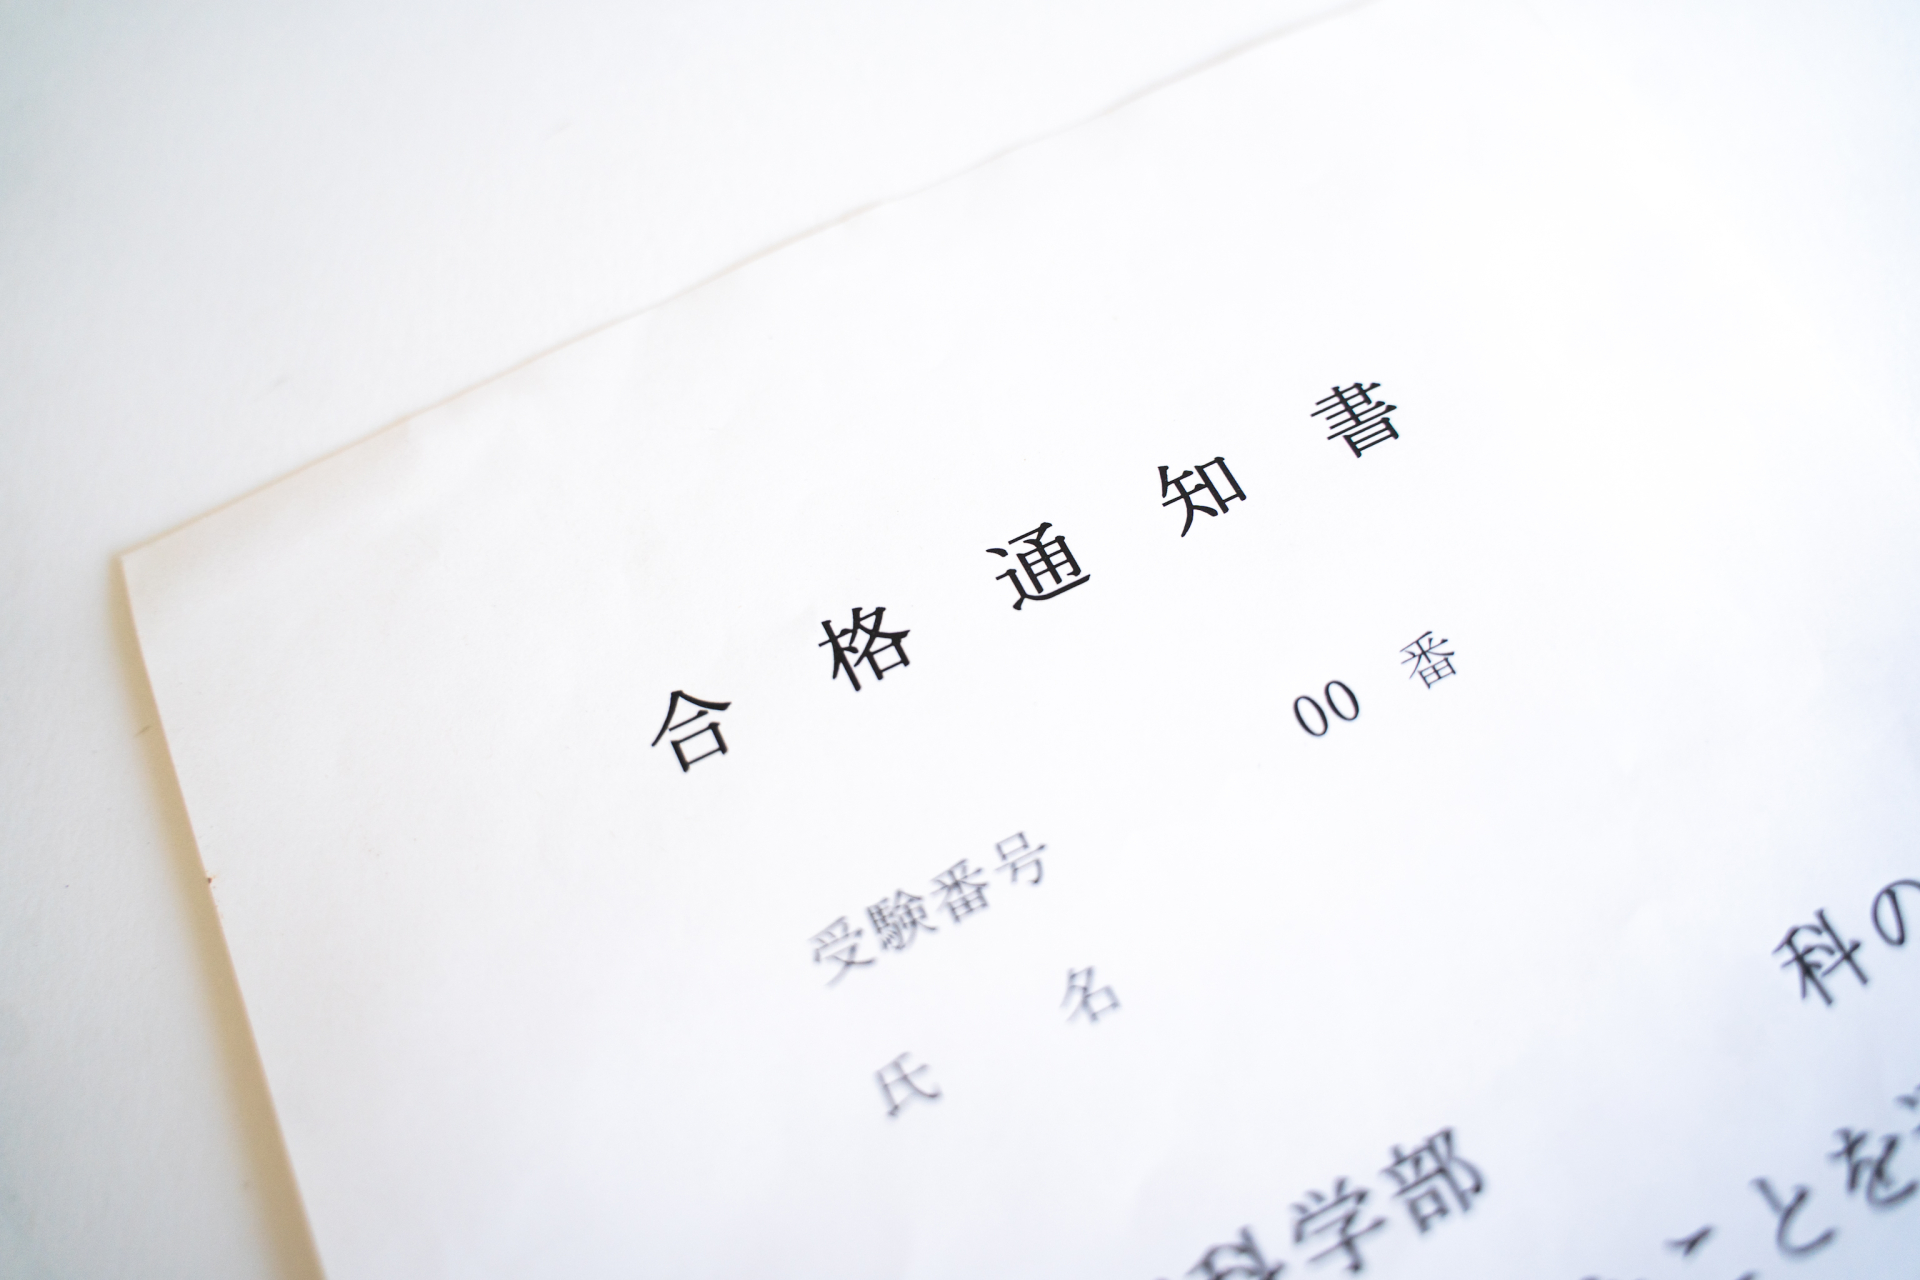 合格通知書
受験番号 00 番
氏 名
科の
科学部
ことを